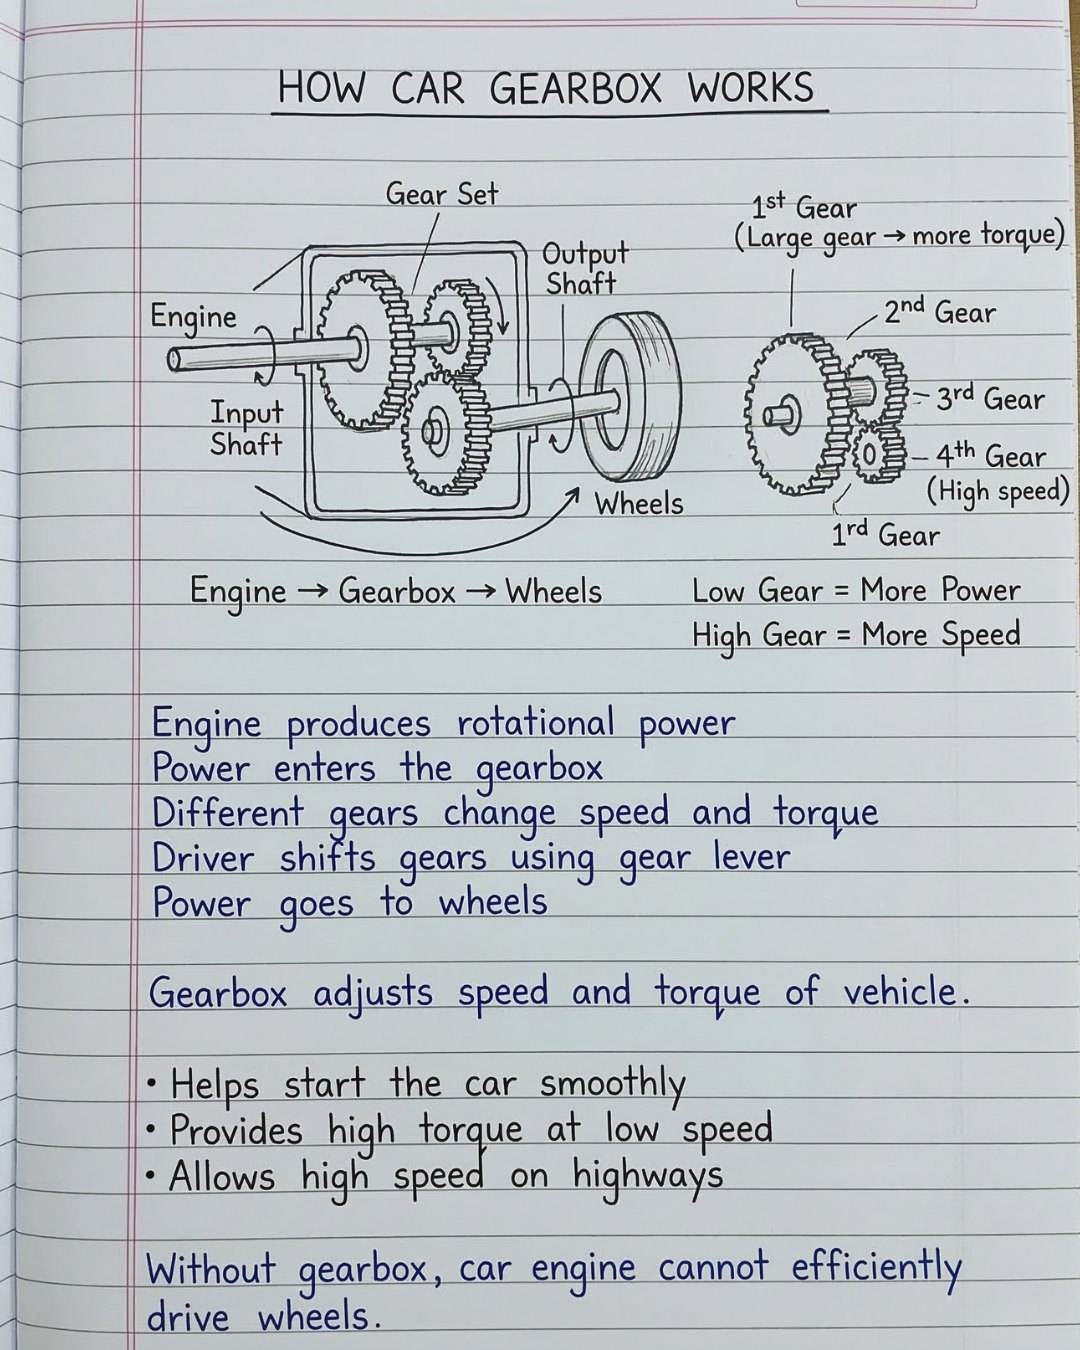 HOW CAR GEARBOX WORKS
Gear Set
Output
Shaft
Engine
Input
Shaft
Wheels
1st Gear
(Large gear → more torque)
2nd Gear
3rd Gear
4th Gear
(High speed)
1rd Gear
Engine → Gearbox → Wheels
Low Gear = More Power
High Gear = More Speed
Engine produces rotational power
Power enters the gearbox
Different gears change speed and torque
Driver shifts gears using gear lever
Power goes to wheels
Gearbox adjusts speed and torque of vehicle.
• Helps start the car smoothly
• Provides high torque at low speed
• Allows high speed on highways
Without gearbox, car engine cannot efficiently
drive wheels.